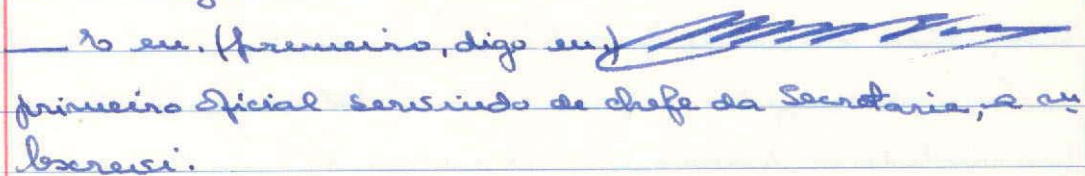 — E eu, (primeiro, digo eu,)
primeiro oficial servindo de chefe da Secretaria, a su
bscrevi.